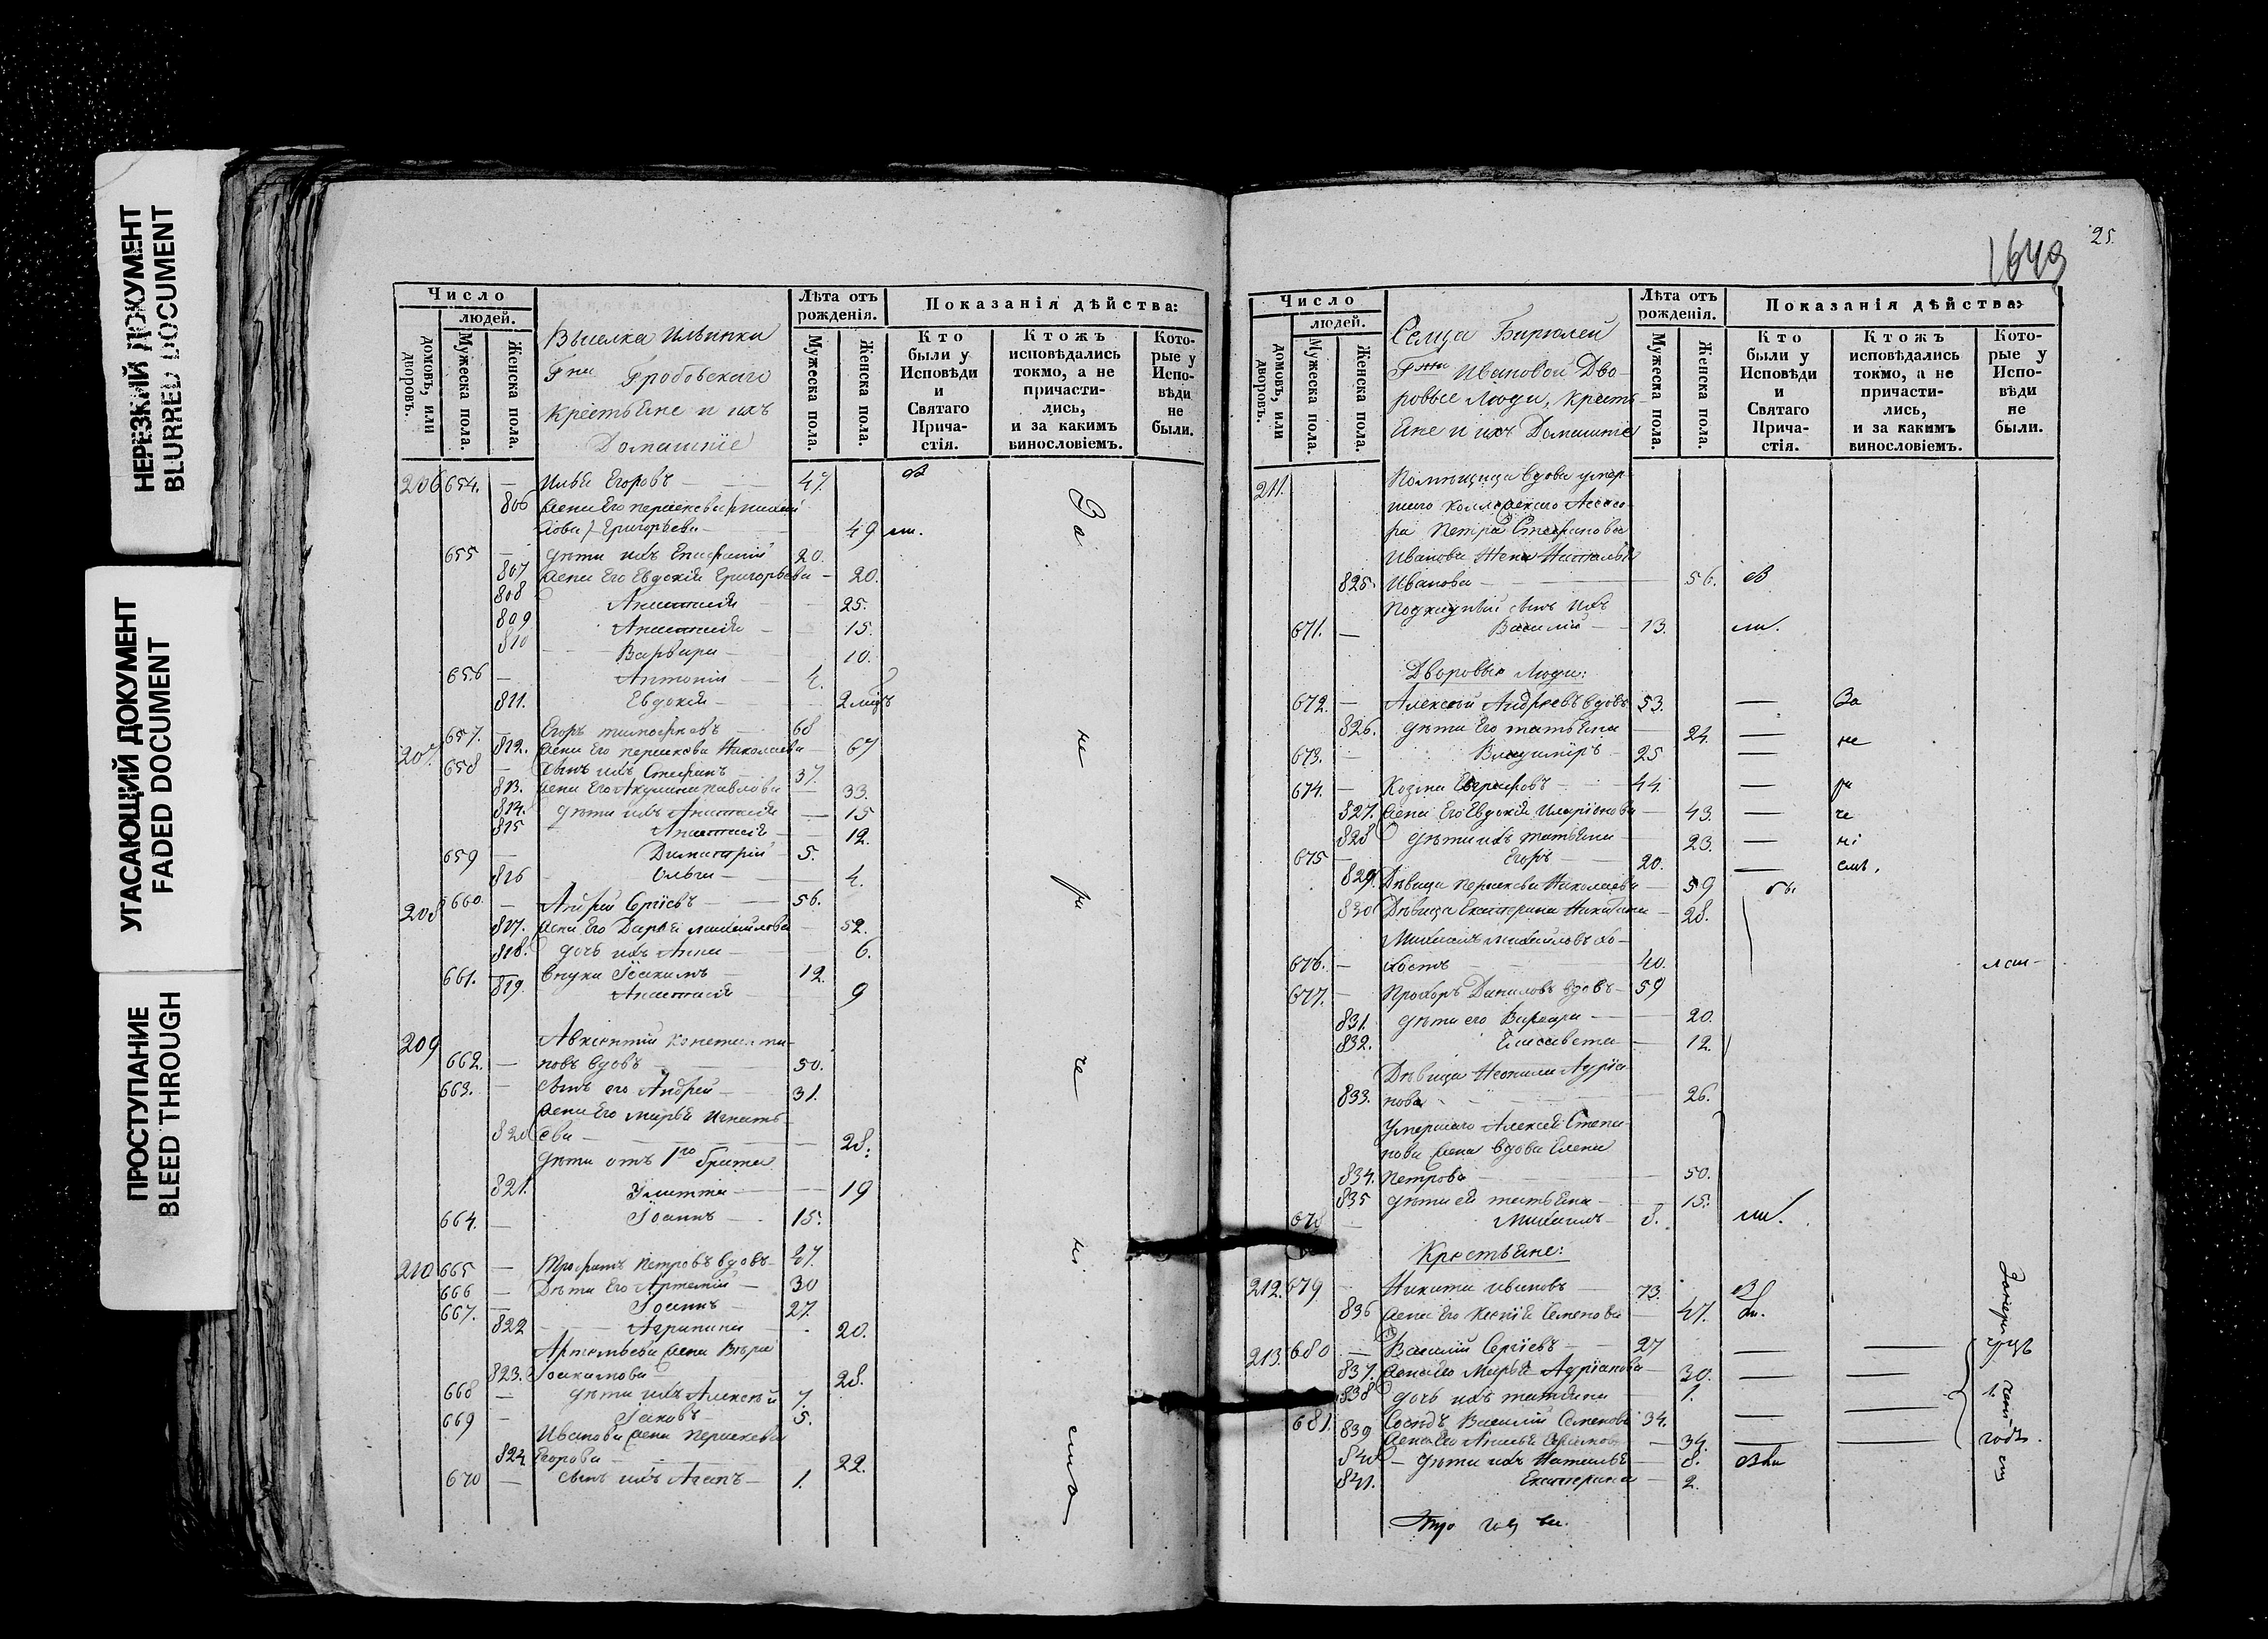 НЕРЕЗКИЙ ДОКУМЕНТ
BLURRED DOCUMENT
УГАСАЮЩИЙ ДОКУМЕНТ
FADED DOCUMENT
ПРОСТУПАНИЕ
BLEED THROUGH
Число
людей.
домовъ, или дворовъ.
Мужеска пола.
Женска пола.
Выселка Ильинки
Гна Гробовскаго
Крестьяне и ихъ
Домашніе
Лѣта отъ рожденія.
Мужеска пола.
Женска пола.
Показанія дѣйства:
Кто были у Исповѣди и Святаго Причастія.
Ктожъ исповѣдались токмо, а не причастились, и за какимъ винословіемъ.
Которые у Исповѣди не были.
206 654. — Илья Егоровъ 47.
806 Жена его
Григорьева 49
655 — дѣти ихъ 20.
807 Жена его Евдокія Григорьева — 20.
808 Анастасія 25.
809 Анастасія — 15.
810 Варвара — 10.
656 — Антоній 4.
811. Евдокія — 2
207. 657. — Егоръ 68
812. Жена его Параскева Николаева — 67
658 — сынъ ихъ Стефанъ 37.
813. Жена его Акулина Павлова 33.
814. дѣти ихъ Анастасія — 15
815 Анастасія — 12.
659 — Димитрій — 5.
816 Ольга — 4.
208 660. — Андрей Сергіевъ — 56.
817. Жена его Дарья Михайлова 52.
818. дочь ихъ Анна — 6.
661. — внуки Іоакимъ — 12.
819. Анастасія — 9
209 Авксентій Константи-
662. — новъ вдовъ 50.
663. — сынъ его Андрей — 31.
Жена его Марья Игнать-
820 ева — 28.
дѣти отъ 1го брака
821. 19
664. — Іоаннъ — 15.
210 665 — Трофимъ Петровъ вдовъ 47.
666 — Дѣти его Артемій — 30
667. — Іоаннъ — 27.
822 Агрипина 20.
Артемьева жена Вѣра
823. Іоакимова 28.
668 — дѣти ихъ Алексѣй 7.
669 — Іаковъ — 5.
Иванова жена Параскева
824. Егорова 22.
670 — сынъ ихъ Агапъ — 1.
За
не
ра
че
ні
емъ
1649
25.
Число
людей.
домовъ, или дворовъ.
Мужеска пола.
Женска пола.
Сельца
Гжи Ивановой Дво-
ровые Люди, Кресть-
яне и ихъ Домашніе
Лѣта отъ рожденія.
Мужеска пола.
Женска пола.
Показанія дѣйства:
Кто были у Исповѣди и Святаго Причастія.
Ктожъ исповѣдались токмо, а не причастились, и за какимъ винословіемъ.
Которые у Исповѣди не были.
211. Помѣщица вдова умер-
шаго Ассесо-
ра Петра Стефанова
Иванова жена Наталья
825. Иванова — 56.
сынъ ихъ
671. — Василій — 13.
Дворовые Люди:
672. — Алексѣй Андреевъ вдовъ 53. — За
826. дѣти его Татьяна — 24. —
673. — Владиміръ — 25 — не
674. — Козма 44. — ра
827. Жена его Евдокія Иларіонова — 43. — че
828 дѣти ихъ Татьяна 23. — ні
675 — Егоръ — 20. — емъ.
829. Дѣвица Параскева Николаева — 59
830 Дѣвица Екатерина Никитина — 28.
Михаилъ Михайловъ хо-
676. — лостъ 40.
677. — Прохоръ Даниловъ вдовъ — 59
831. дѣти его Варвара — 20.
832. Елисавета — 12.
Дѣвица Неонила Адріа-
833. нова — 26.
Умершаго Алексѣя Степа-
нова жена вдова Елена
834. Петрова — 50.
835 дѣти ея Татьяна — 15.
678 — Михаилъ — 8.
Крестьяне:
212. 679 — Никита Ивановъ — 73.
836 Жена его Ксенія Семенова — 47.
213. 680 — Василій Сергіевъ — 27 — —
837. Жена его Марья Адріанова — 30. — —
838 дочь ихъ Татьяна — 1.
681. Сосѣдъ Василій Семеновъ 34. — —
839 Жена его 34. — — годъ.
840 — дѣти ихъ Наталья 8.
841. Екатерина — 2.